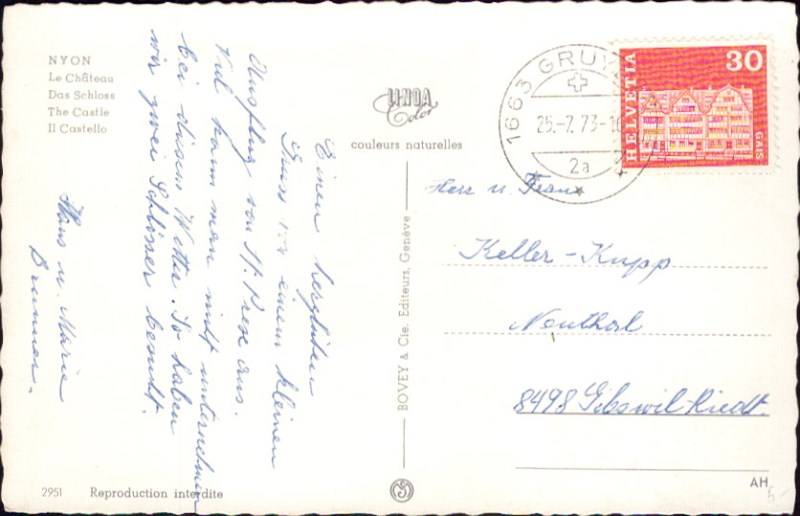 NYON
Le Château
Das Schloss
The Castle
Il Castello
Einen herzlichen
Gruss von einem kleinen
Ausflug von St. Prex aus.
Viel kann man nicht unternehmen
bei diesem Wetter. So haben
wir zwei Schlösser besucht.
Hans u. Marie
Brunner.
2951 Reproduction interdite
LINDA
Color
couleurs naturelles
BOVEY & Cie. Editeurs, Genève
1663 GRUY
25.-7.73-1
2a
30
HELVETIA
GAIS
Herr u. Frau
Keller-Kupp
Neuthal
8498 Gibswil-Riedt.
AH